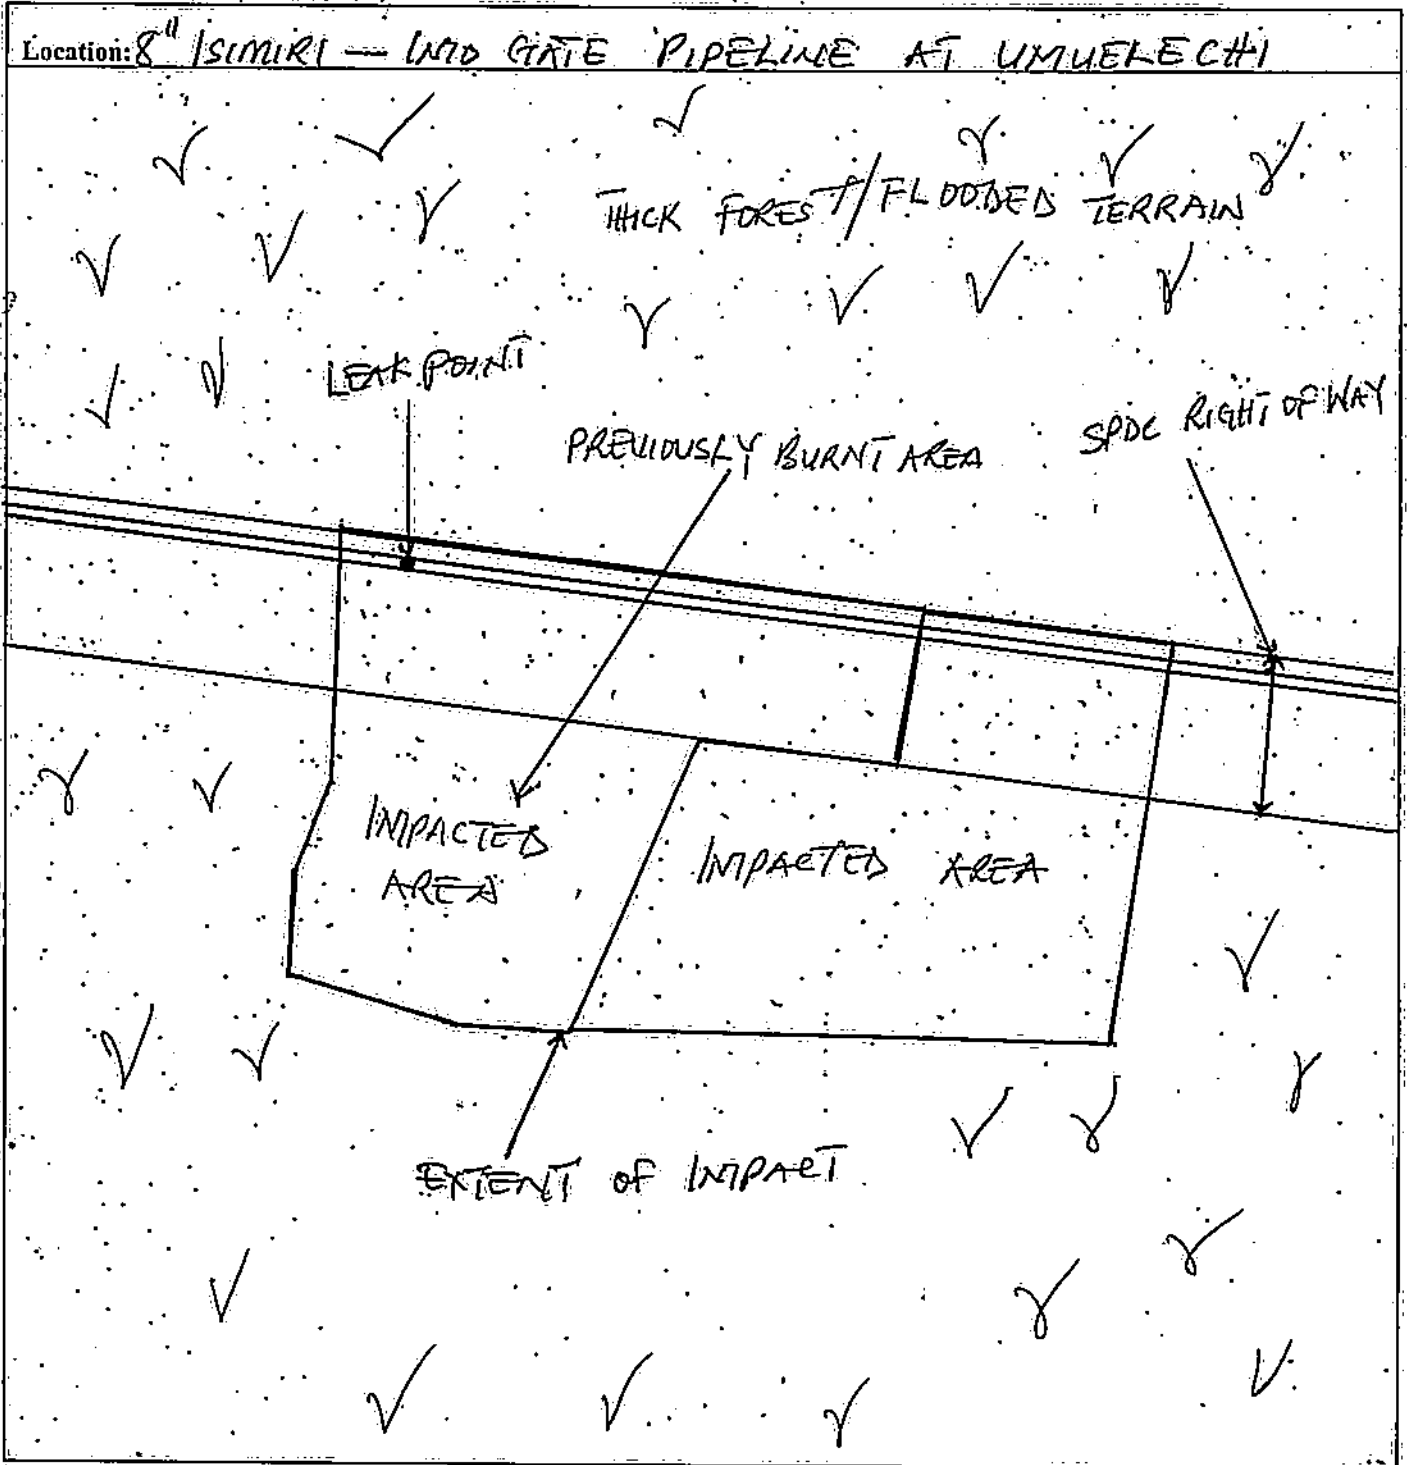 Location: 8" ISIMIRI — IMO GATE PIPELINE AT UMUELECHI
THICK FOREST/FLOODED TERRAIN
LEAK POINT
SPDC RIGHT OF WAY
PREVIOUSLY BURNT AREA
IMPACTED
AREA
IMPACTED AREA
EXTENT OF IMPACT